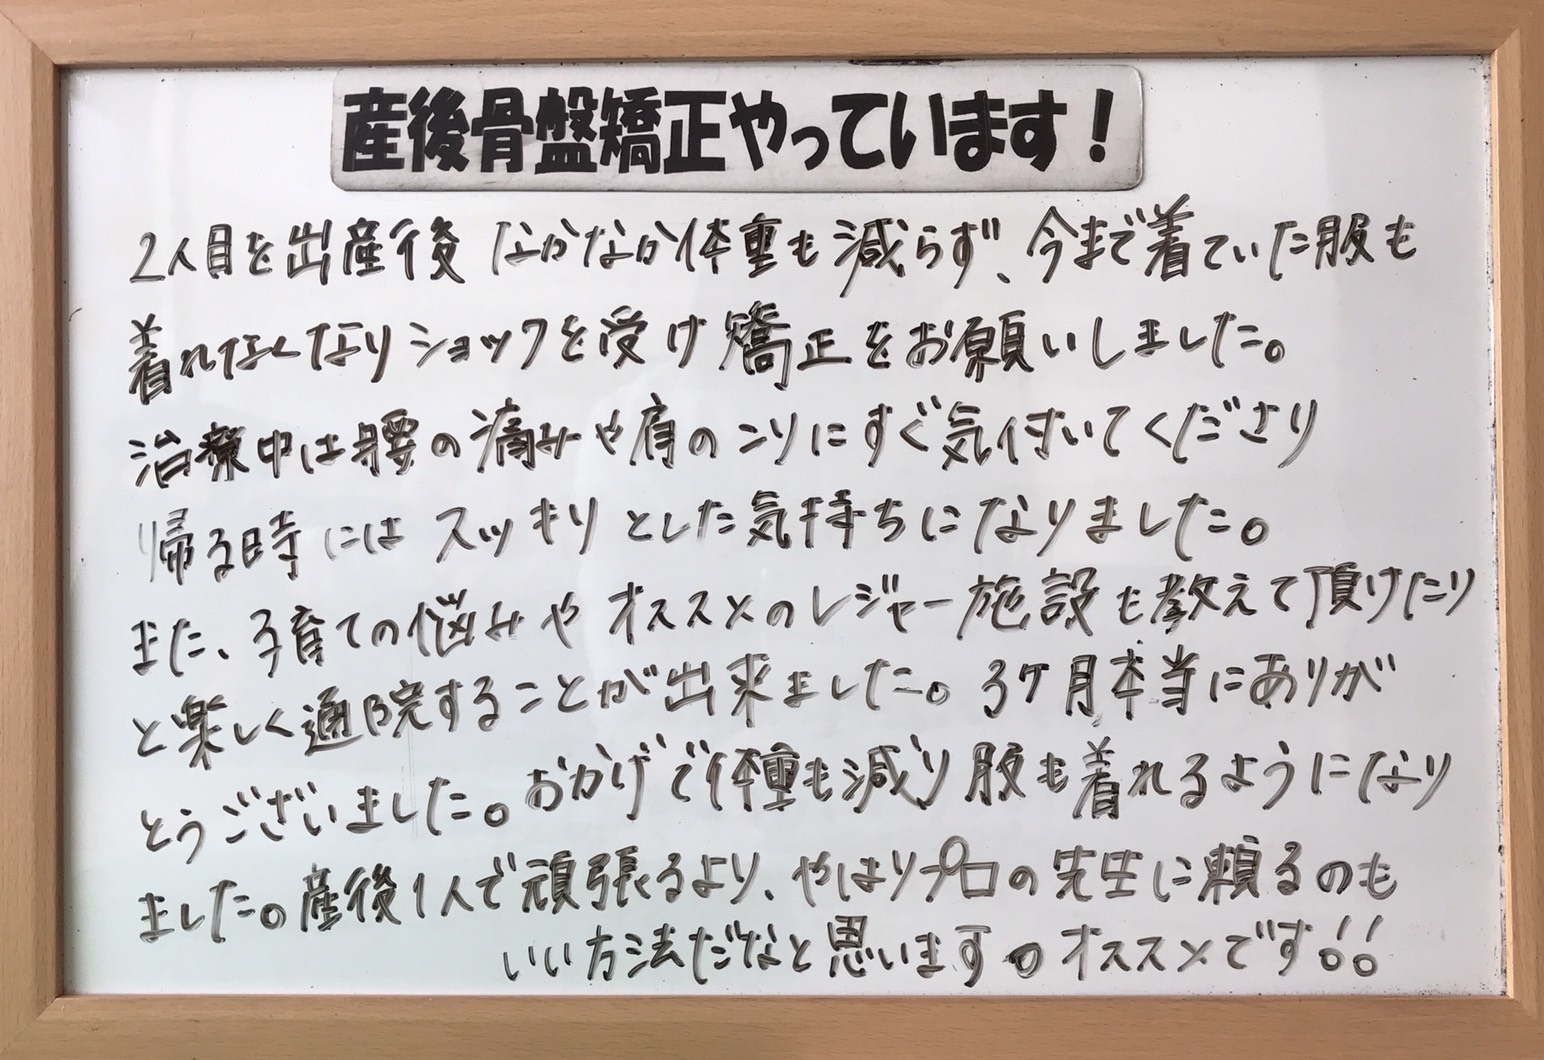 産後骨盤矯正やっています！
2人目を出産後 なかなか体重も減らず、今まで着ていた服も
着れなくなりショックを受け矯正をお願いしました。
治療中は腰の痛みや肩のコリにすぐ気付いてくださり
帰る時にはスッキリとした気持ちになりました。
また、子育ての悩みやオススメのレジャー施設も教えて頂けたり
と楽しく通院することが出来ました。3ヶ月本当にありが
とうございました。おかげで体重も減り服も着れるようになり
ました。産後1人で頑張るより、やはりプロの先生に頼るのも
いい方法だなと思います。オススメです!!